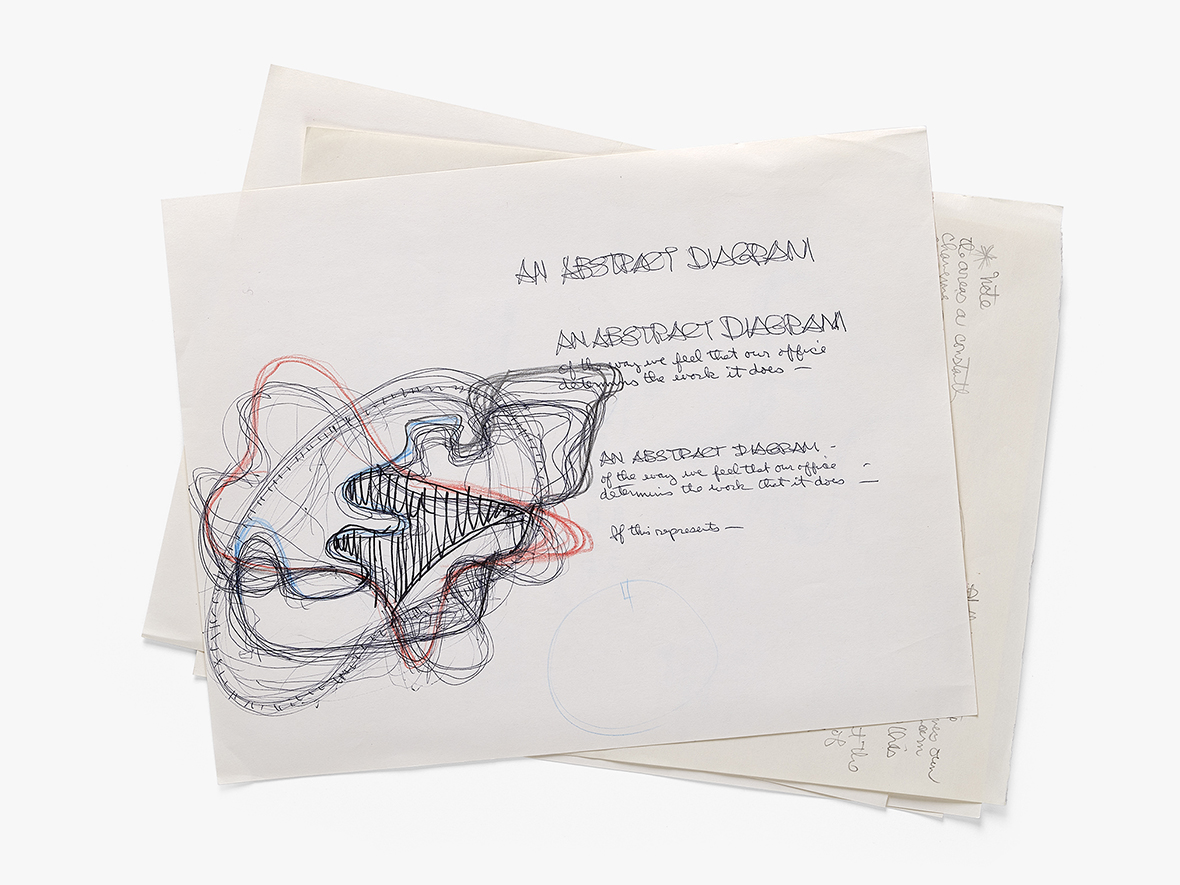 AN ABSTRACT DIAGRAM
AN ABSTRACT DIAGRAM
of the way we feel that our office
determins the work it does —
AN ABSTRACT DIAGRAM -
of the way we feel that our office -
determins the work that it does —
If this represents —
* note
the area is a constell
own
this
of